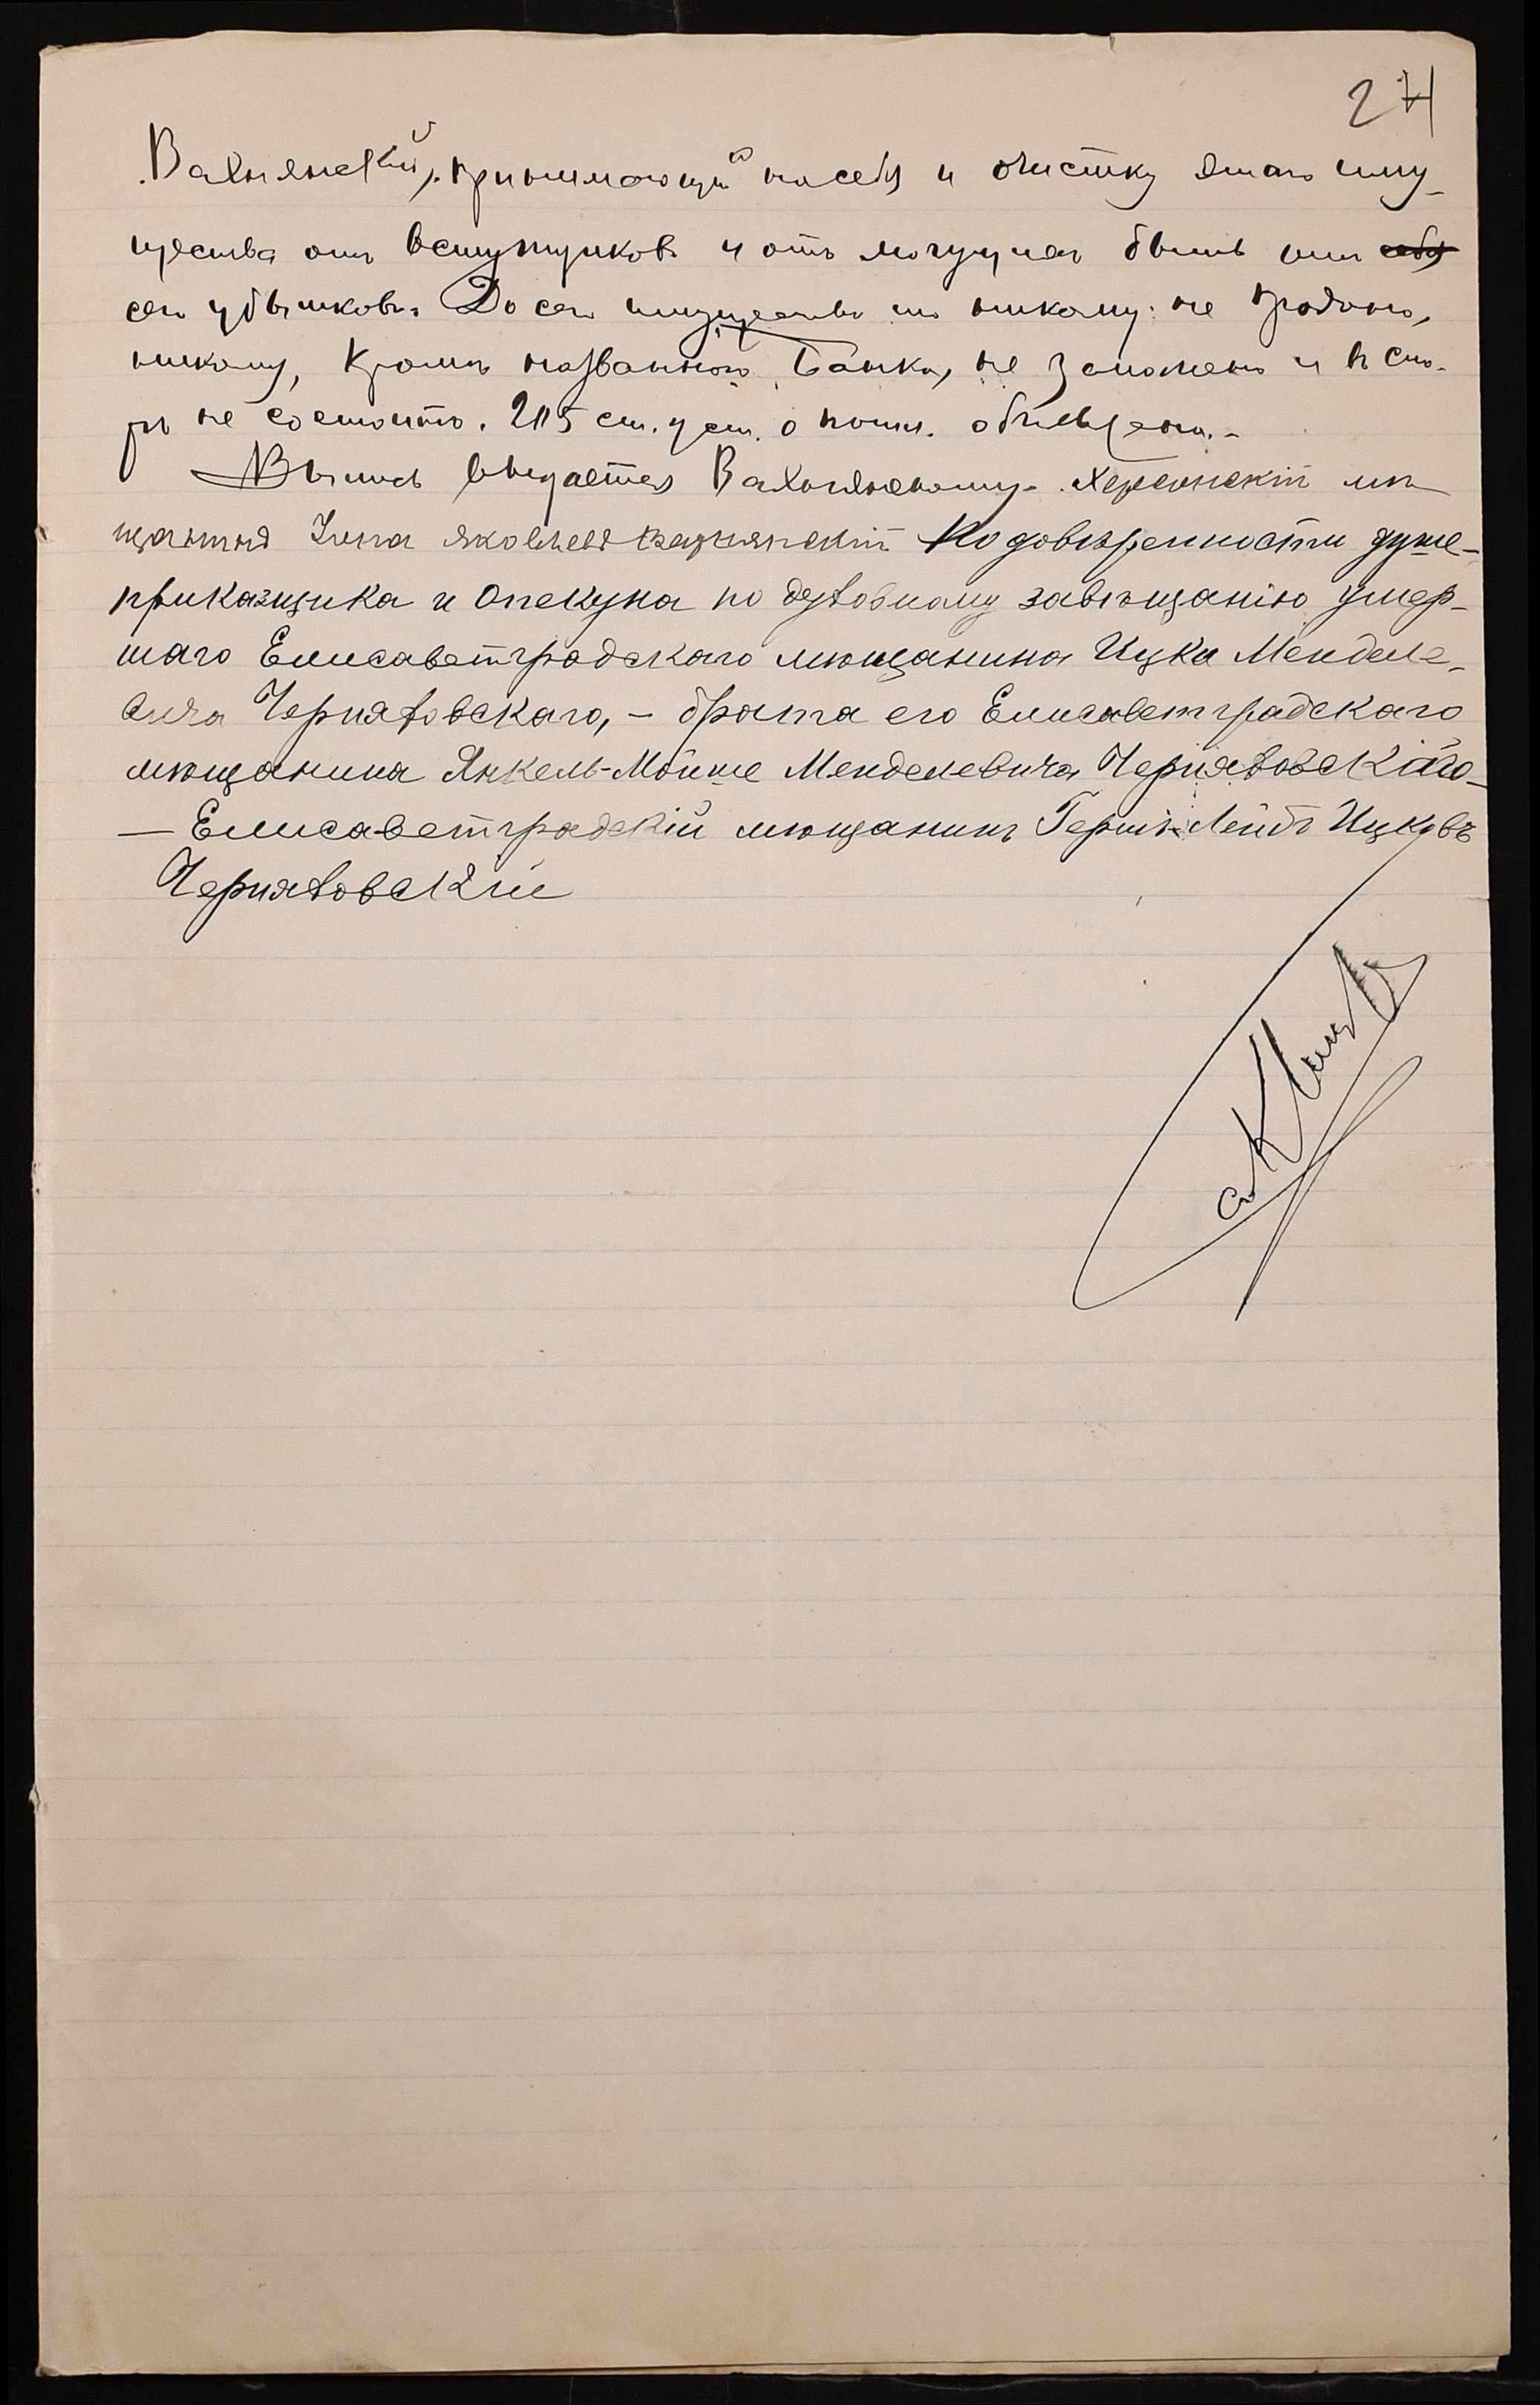 24
Вахнянскій, принимающій на себя и очистку этаго иму-
щества отъ вступщиковъ и отъ могущихъ быть при
семъ убытковъ. До сего имущество это никому не продано,
никому, кромѣ названнаго Банка, не заложено и въ спо-
рѣ не состоитъ. 205 ст. уст. о пошл. объявлена.-
Выпись выдается Вахнянскому. Херсонскій мѣ
щанинъ Яковлевъ Вахнянскій По довѣренности душе-
приказщика и Опекуна по духовному завѣщанію умер-
шаго Елисаветградскаго мѣщанина Ицка Менделе-
вича Черняховскаго, - брата его Елисаветградскаго
мѣщанина Янкель-Мойше Менделевича Черняховскаго-
- Елисаветградскій мѣщанинъ Герш-Лейбъ Ицковъ
Черняховскій